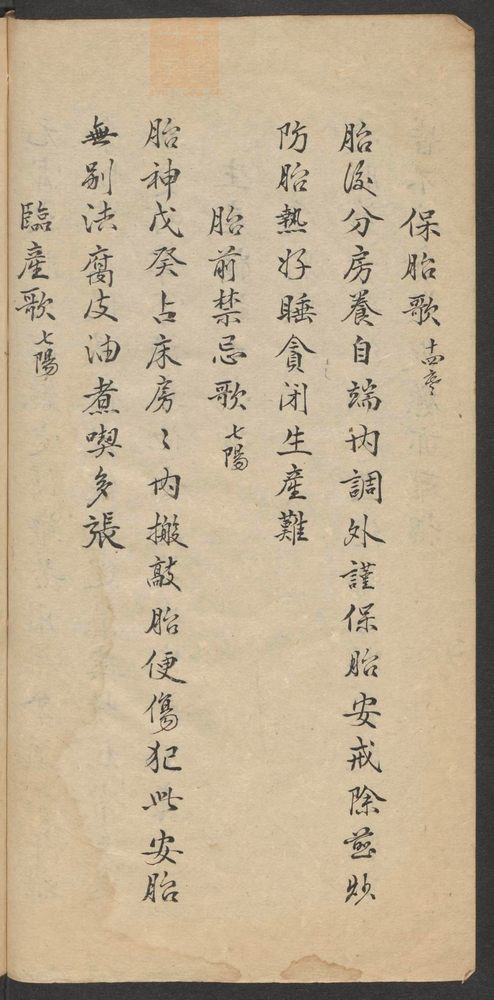 保胎歌 十四寒
胎後分房養自端內調外謹保胎安戒除煎炒
防胎熱好睡貪闭生產難
胎前禁忌歌 七陽
胎神戊癸占床房〻內搬敲胎便傷犯此安胎
無别法腐皮油煮喫多張
臨產歌 七陽